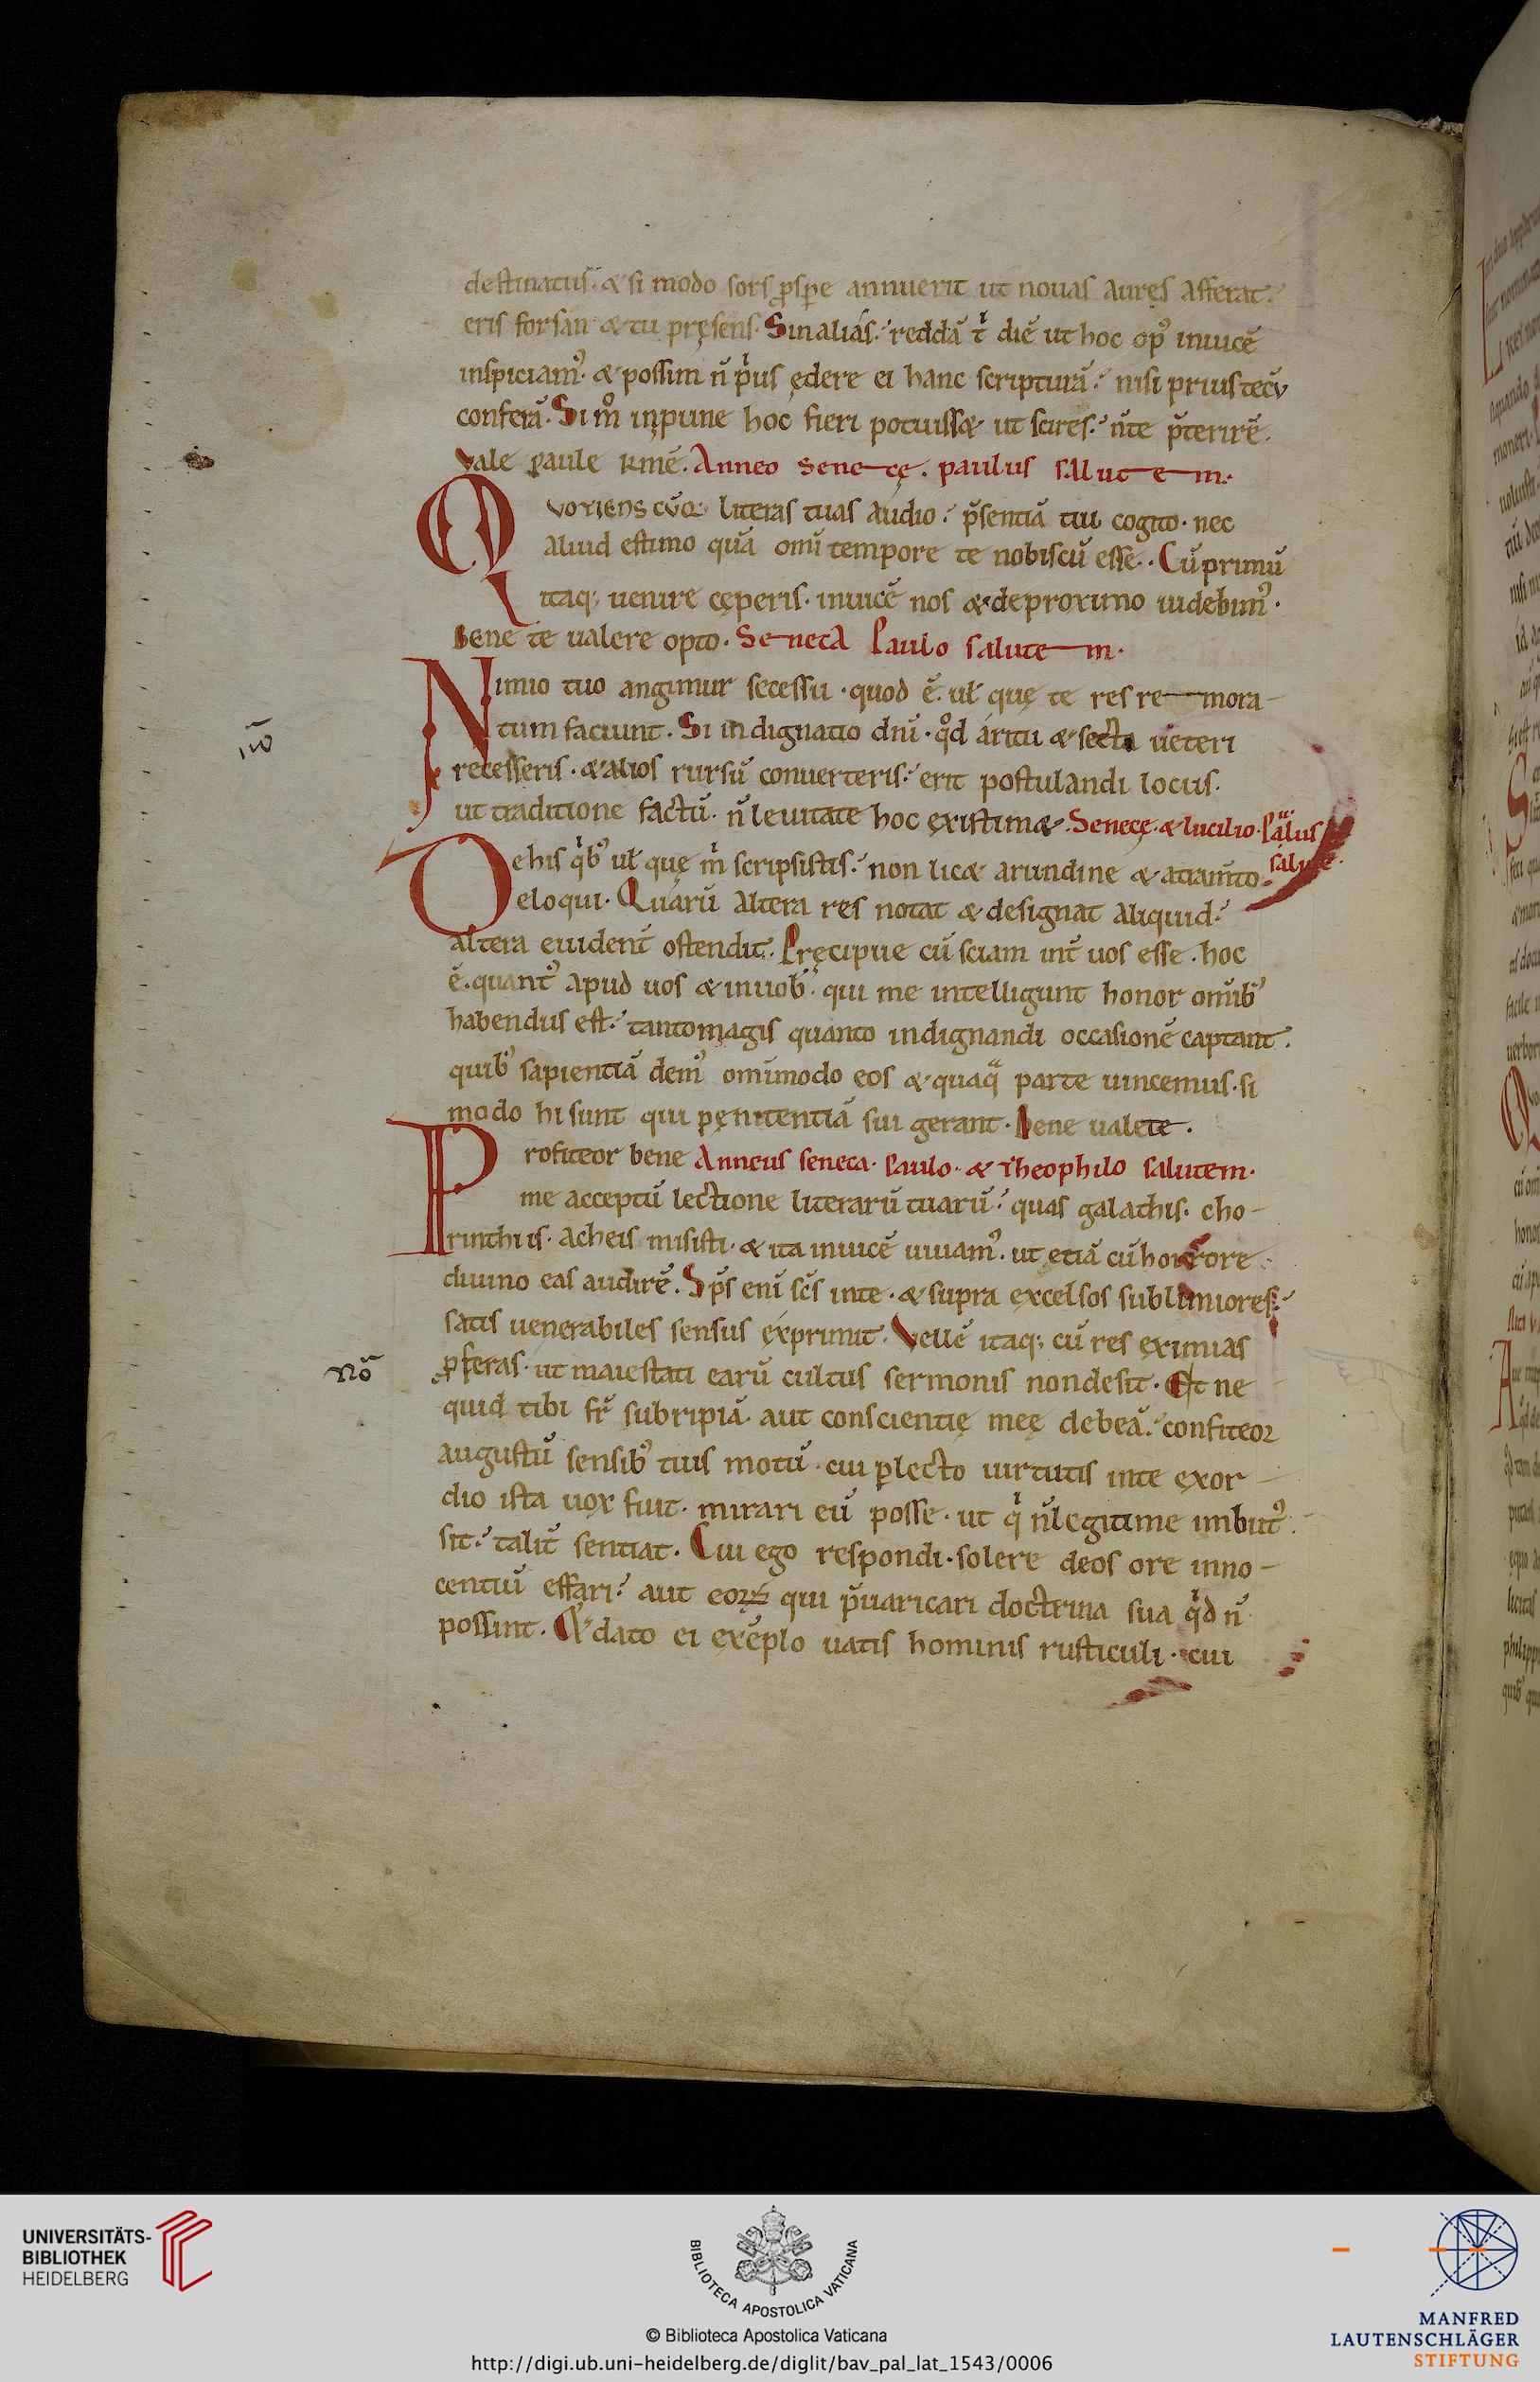 destinatus. & si modo sors ꝓspe annuerit ut nouas aures afferat.
eris forsan & tu pręsens. Sin alias. reddā t́ diē ut hoc opꝰ inuicē
inspiciamꝰ. & possim n̄ pⁱus ędere ei hanc scripturā. nisi prius tecū
conferā. Si mº inpune hoc fieri potuiss& ut scires. n̄ te p̄terirē.
Vale paule kmē. Anneo senecę. paulus salutem.
Quotienscūq; literas tuas audio. p̄sentiā tui cogito. nec
aliud estimo quā omī tempore te nobiscū esse. Cū primū
itaq; uenire cęperis. inuicē nos & de proximo uidebimꝰ.
Bene te ualere opto. Seneca Paulo salutem.
Nimio tuo angimur secessu. quod ē. ul̄ quę te res remora-
tum faciunt. Si indignatio dnī. qºd a ritu & secta ueteri
recesseris. & alios rursū conuerteris. erit postulandi locus.
ut traditione factū. n̄ leuitate hoc existim&. Senecę. & lucilio. Paulus
salutē.
De his qⁱbꝰ ul̄ quę m̄ scripsistis. non lic& arundine & atram̄to
eloqui. Quarū altera res notat & designat aliquid.
altera euident̄ ostendit. Pręcipue cū sciam int̄ uos esse. hoc
ē. quantꝰ apud uos & in uob. qui me intelligunt honor omībꝰ
habendus est. tanto magis quanto indignandi occasionē captant.
quibꝰ sapientiā demꝰ omīmodo eos & quaqᵃ parte uincemus. si
modo hi sunt qui pęnitentiā sui gerant. Bene ualete.
Profiteor bene Anneus seneca. Paulo. & Theophilo salutem.
me acceptū lectione literarū tuarū. quas galathis. cho-
rinthiis. acheis misisti. & ita inuicē uiuamꝰ. ut etiā cū horrore
diuino eas audirē. Sp̄s enī sc̄s in te. & supra excelsos sublimiores.
satis uenerabiles sensus exprimit. Vellē itaq; cū res eximias
ꝓferas. ut maiestati earū cultus sermonis non desit. Et ne
quid tibi fr̄ subripiā. aut conscientię meę debeā. confiteor
augustū sensibꝰ tuis motū. cui ꝑlecto uirtutis in te exor-
dio ista uox fuit. mirari eū posse. ut qⁱ n̄ legitime imbutꝰ
sit. talit̄ sentiat. Cui ego respondi. solere deos ore inno-
centiū effari. aut eoꝝ qui p̄uaricari doctrina sua qⁱd n̄
possint. & dato ei exēplo uatis hominis rusticuli. cui
nō
nō
UNIVERSITÄTS-
BIBLIOTHEK
HEIDELBERG
BIBLIOTECA APOSTOLICA VATICANA
© Biblioteca Apostolica Vaticana
http://digi.ub.uni-heidelberg.de/diglit/bav_pal_lat_1543/0006
MANFRED
LAUTENSCHLÄGER
STIFTUNG